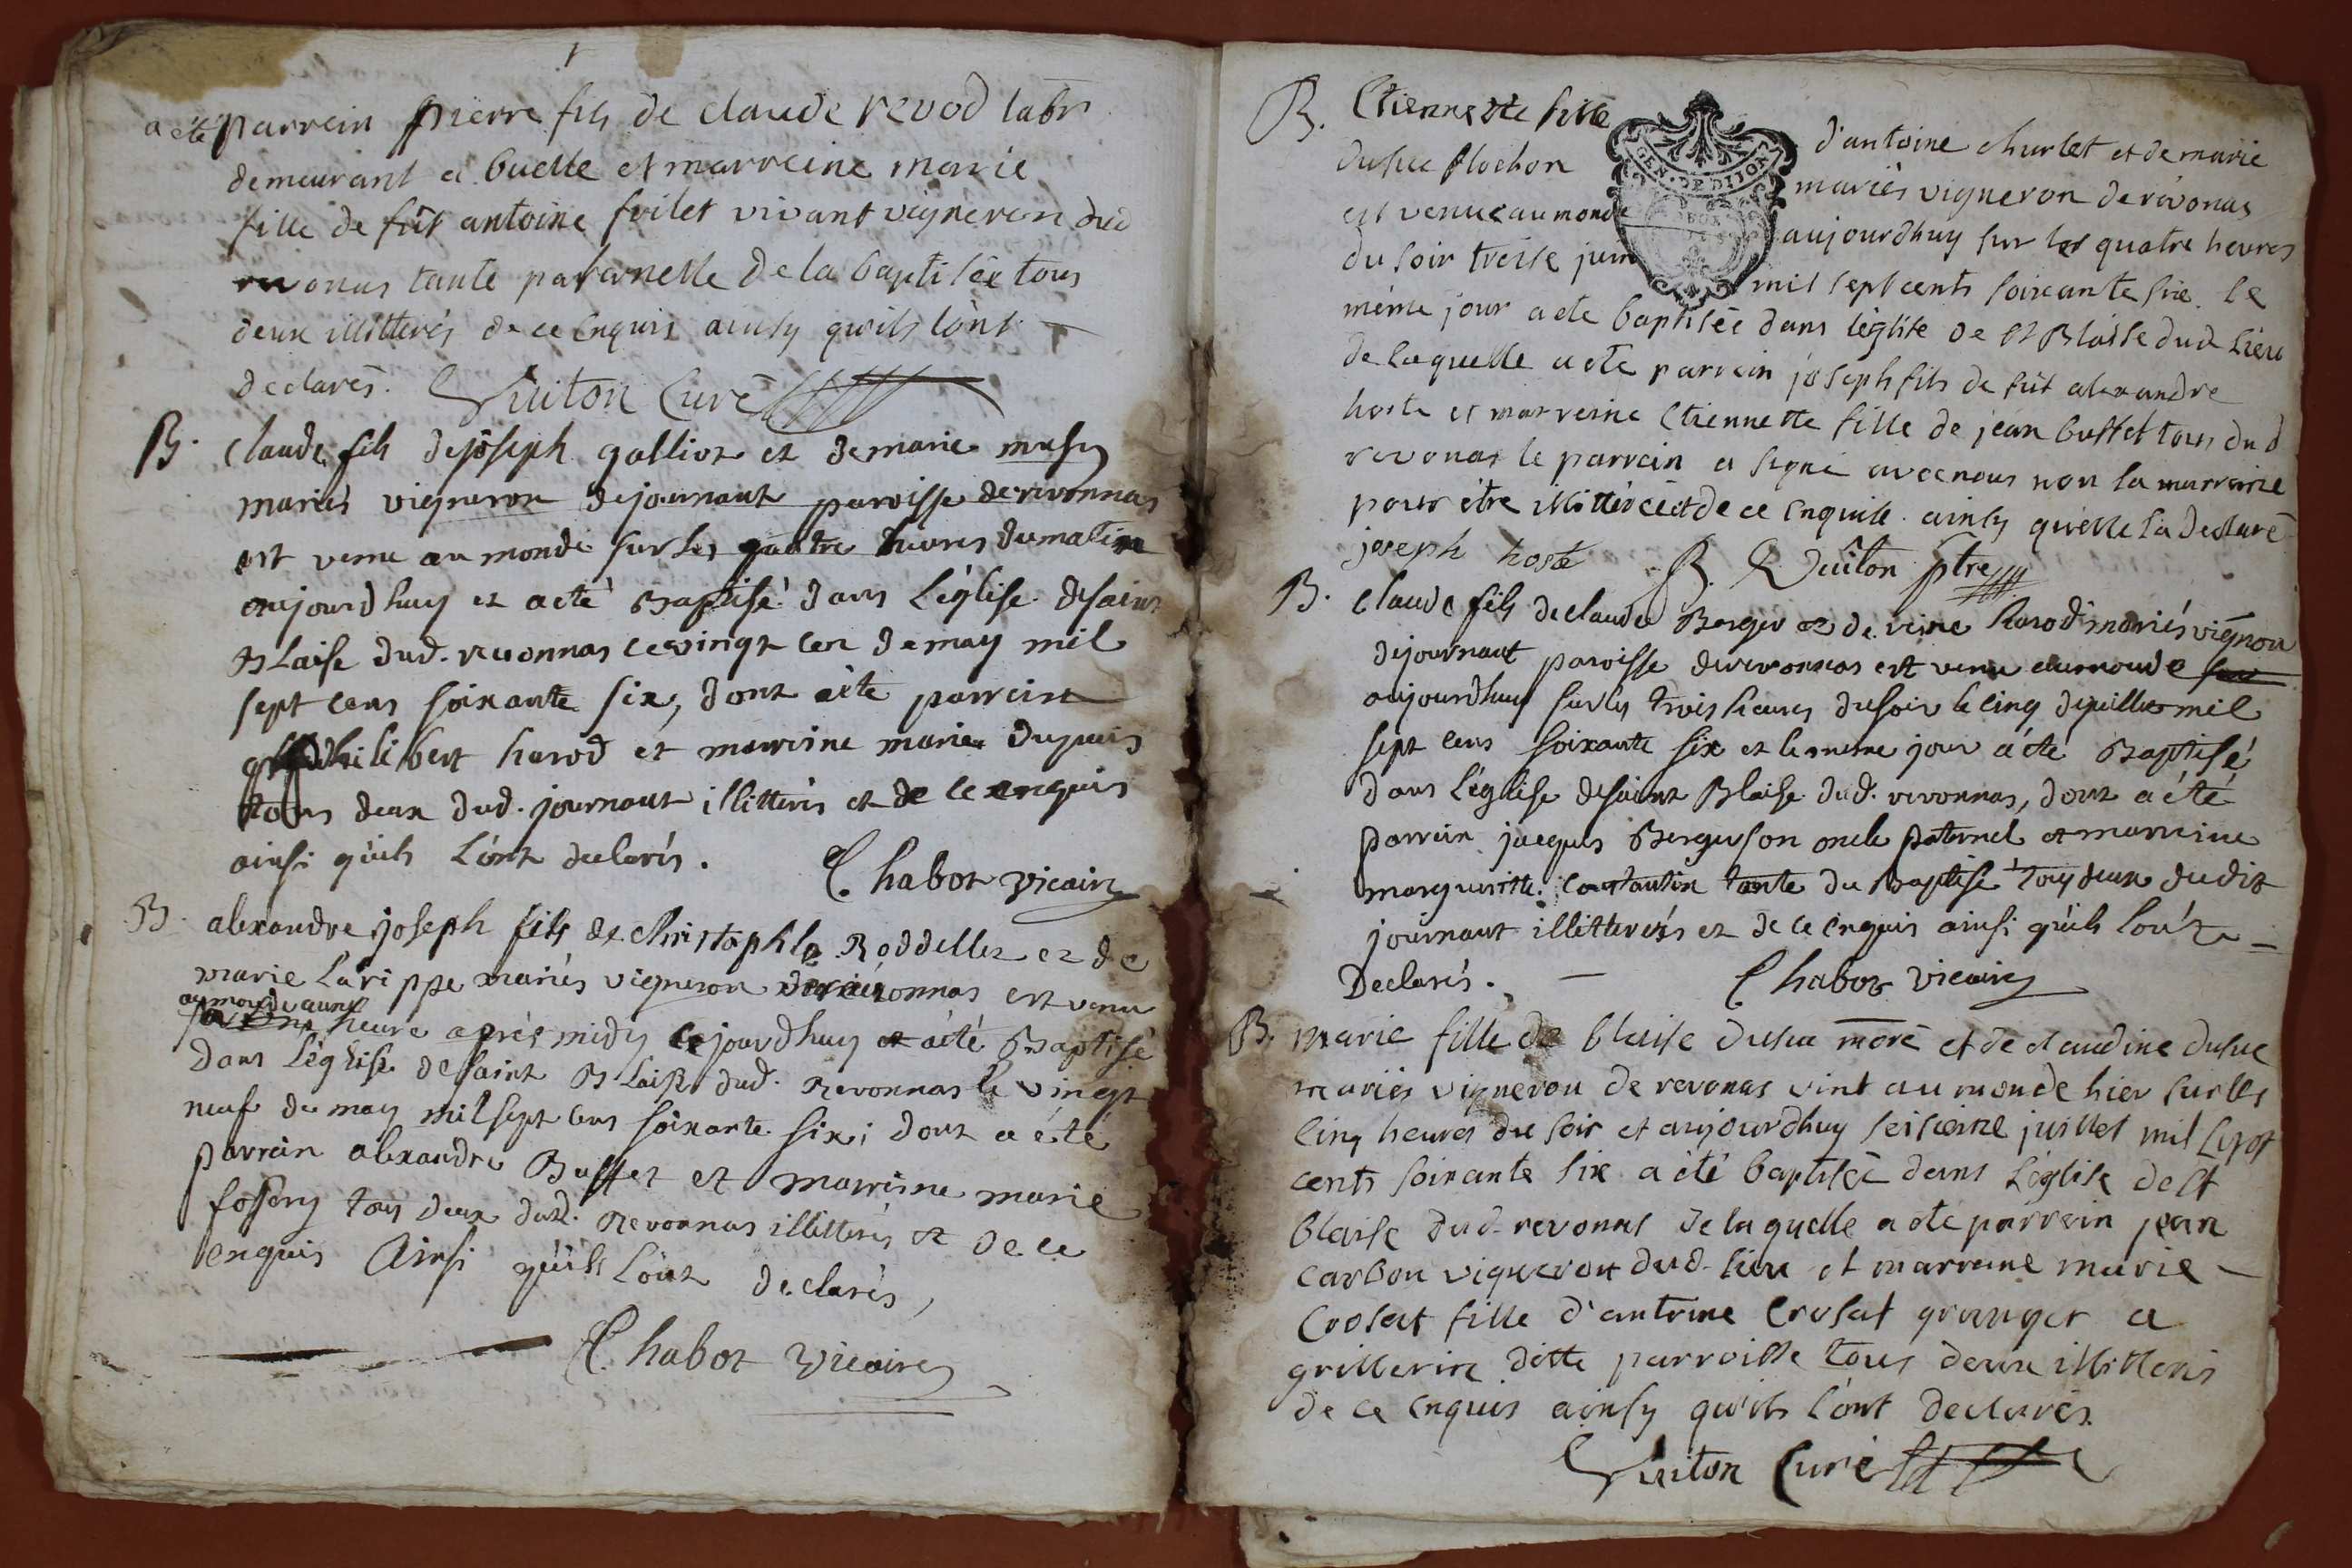 a été parrein pierre fils de claude revod labr
demeurant a buelle et marreine marie
fille de fût antoine frilet vivant vigneron dud
revonas tante paternelle de la baptisée tous
deux illitterés de ce enquis ainsy qu'ils l'ont
declarés. Guiton Curé
B. Claude fils de joseph galliot et de marie
mariés vigneron de journaut paroisse de revonnas
est venu au monde sur les quatre heures du matin
aujourdhuy et a eté Baptisé dans L'église de saint
Blaise dud. revonnas ce vingt un de may mil
sept cens soixante six, dont a éte parrein
philibert harod et marreine marie dupuis
tous deux dud. journaut illitterés et de ce enquis
ainsi qu'ils L'ont declarés. Chabot vicaire
B. alexandre joseph fils de christophle Roddellet et de
marie Larippe mariés vigneron de revonnas est venu
au monde a une
heure après midy ce jourdhuy et a été Baptisé
dans L'église de saint Blaise dud. Revonnas le vingt
neuf de may mil sept cens soixante six; dont a été
parrein alexandre Buffet et marreine marie
tous deux dud. Revonnas illitterés et de ce
enquis Ainsi qu'ils L'ont declarés,
Chabot Vicaire
B. Etiennette fille d'antoine churlet et de marie
dusuc plochon mariés vigneron de revonas
est venue au monde aujourdhuy sur les quatre heures
du soir treise juin mil sept cents soixante six. le
même jour a ete baptisée dans l'église de St Blaise dud. Lieu
de laquelle a ete parrein joseph fils de fût alexandre
hoste et marreine Etiennette fille de jean buffet tous dud
revonas le parrein a signé avec nous non la marreine
pour être illitterée et de ce enquise ainsy qu'elle la declaré
joseph hoste B. Guiton ptre
GEN. DE DIJON
B. Claude fils de claude Berger et de reine harod mariés vigneron
de journaut paroisse de revonnas est venu au monde
aujourdhuy sur les trois heures du soir le cinq de juillet mil
sept cens soixante six et le meme jour a été Baptisé
dans L'église de saint Blaise dud. revonnas, dont a été
parrein jacques Berger son oncle paternel et marreine
margueritte constantin tante du Baptisé tous deux dudit
journaut illitterés et de ce enquis ainsi qu'ils l'ont
Declarés. Chabot Vicaire
B. Marie fille de blaise dusuc moré et de claudine dusuc
mariés vigneron de revonas vint au monde hier sur les
cinq heures du soir et aujourdhuy seisieme juillet mil sept
cents soixante six a été baptisée dans L'église de St
blaise dud. revonas de laquelle a ete parrein jean
carbon vigneron dud. lieu et marreine marie
Crosat fille d'antoine Crosat granger a
grillerin ditte parroisse tous deux illitterés
de ce enquis ainsy qu'ils l'ont declarés.
Guiton Curé